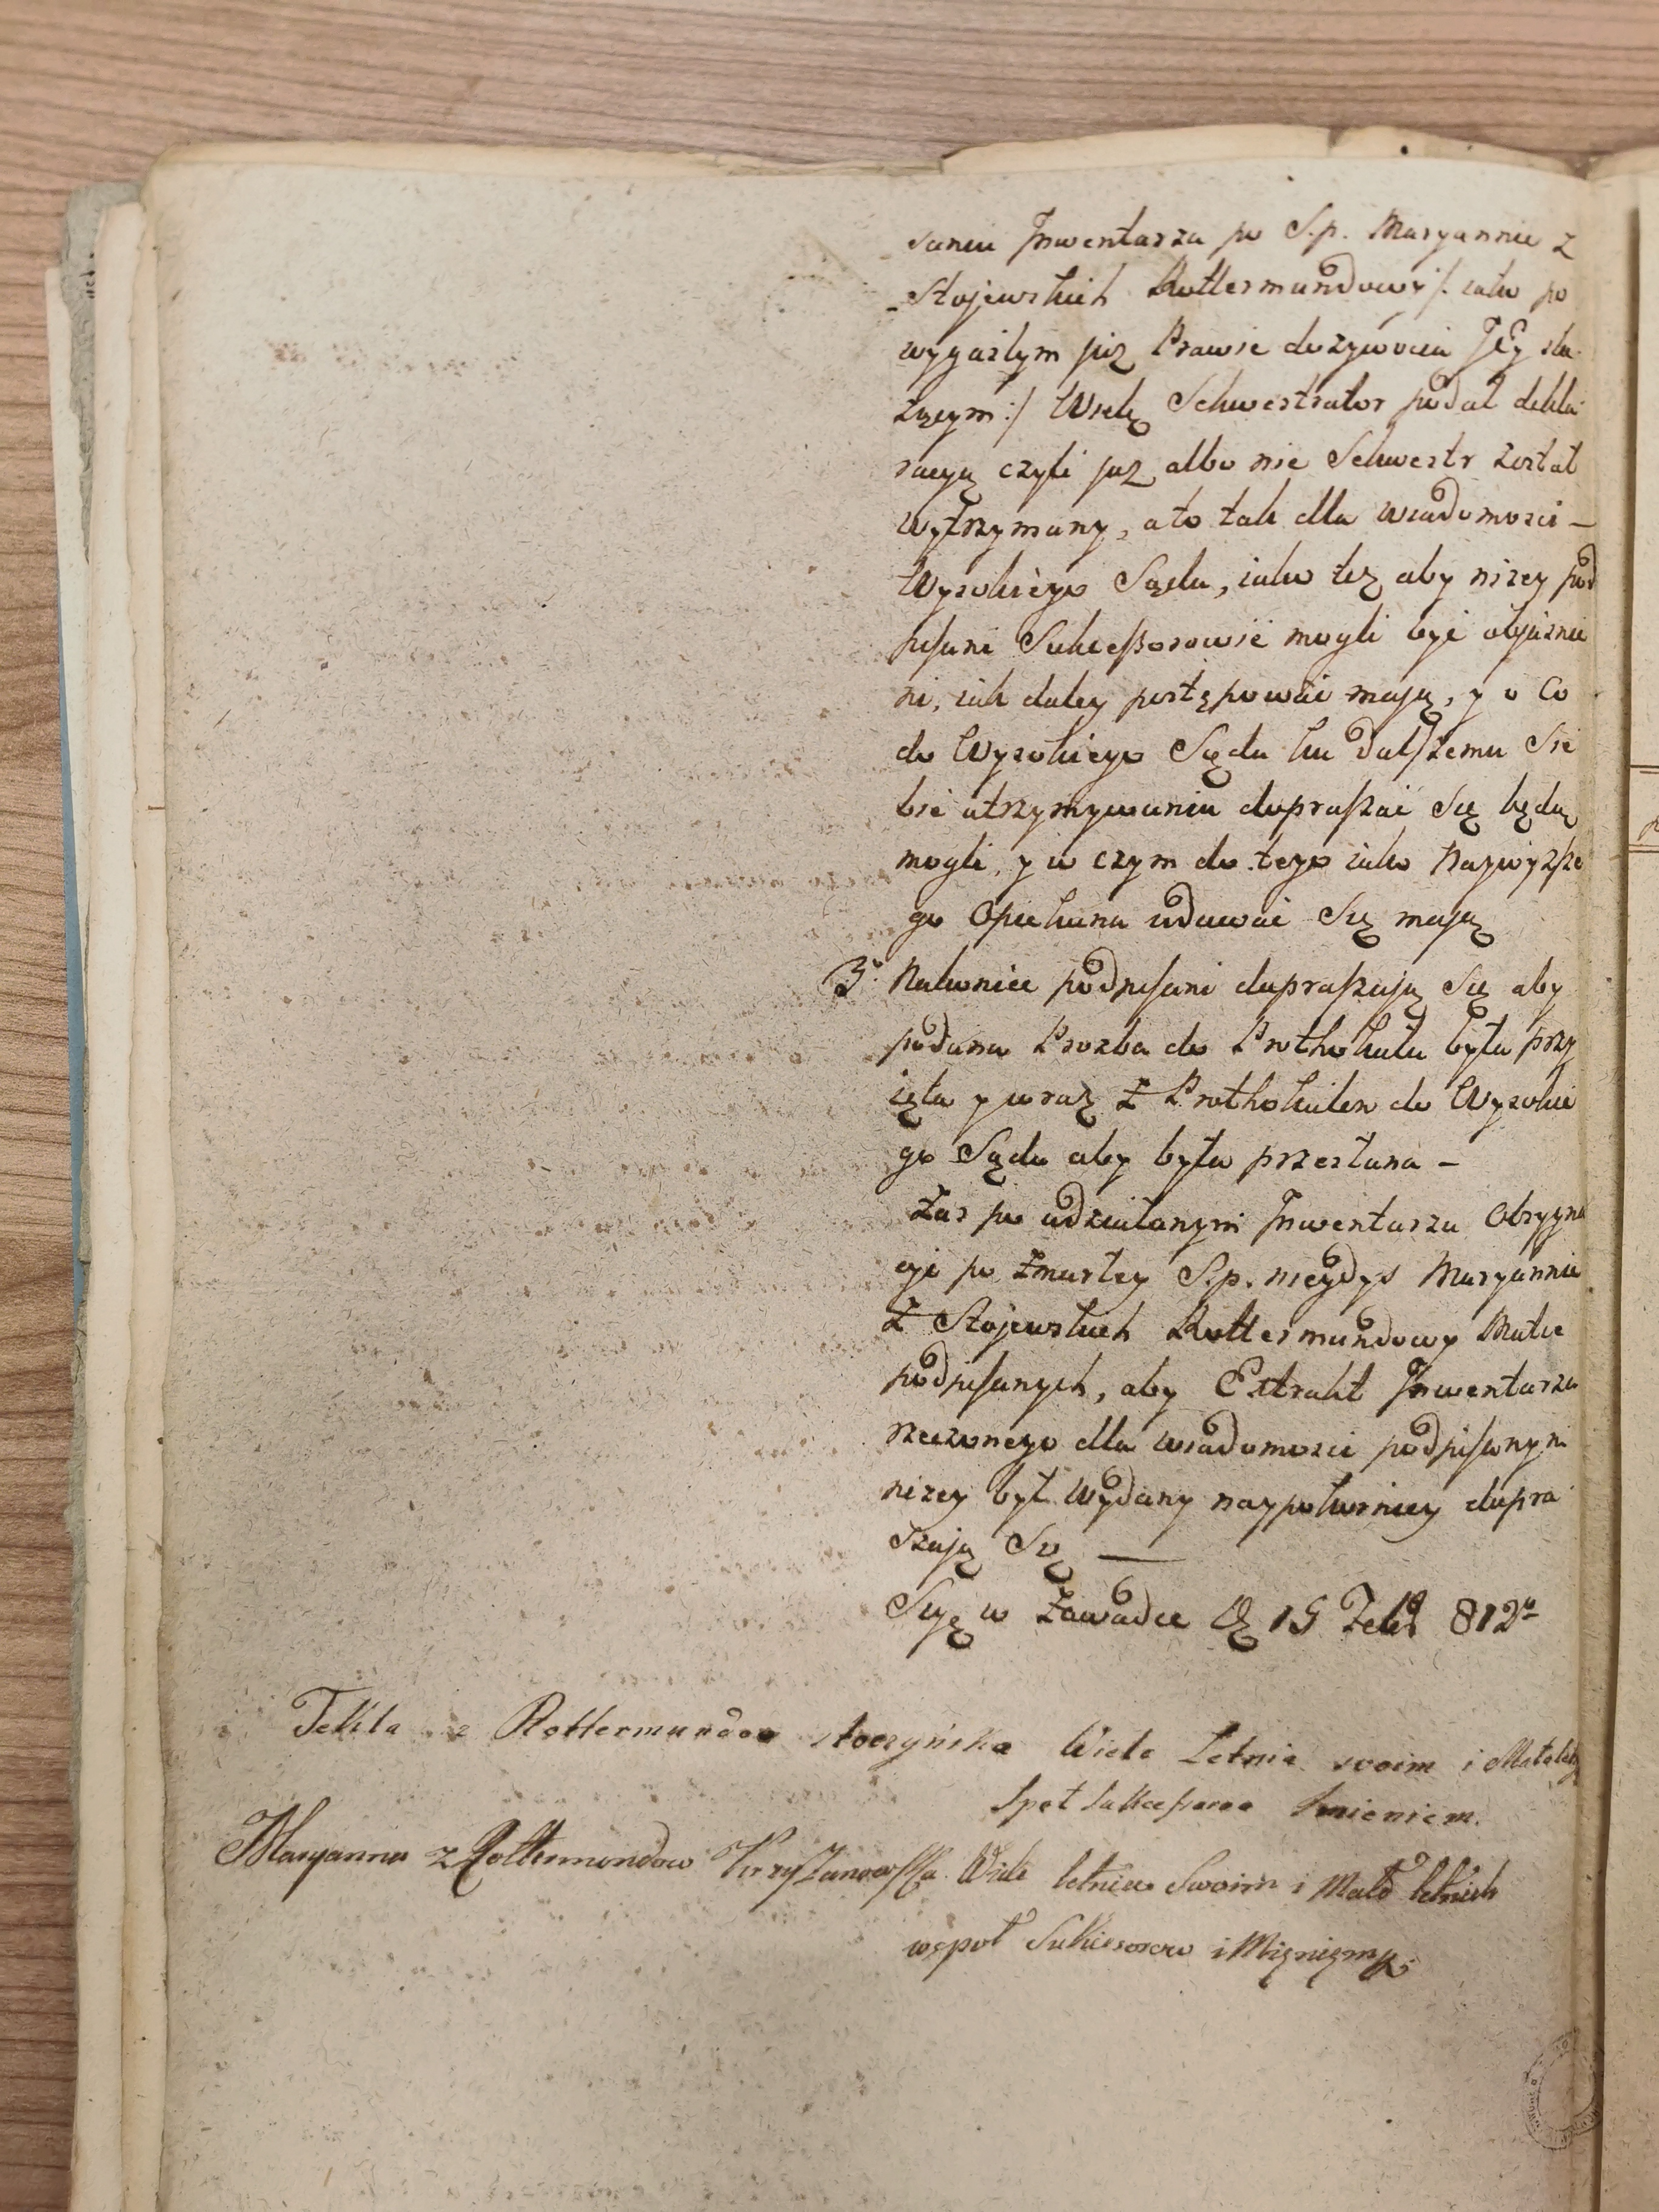 saniu Jnwentarza po S.p. Maryannie z
Stojewskich Rottermundowy /: iako po
wygasłym już Prawie dozywocia JEy słu
żącym :/ Wielą Sekwestrator podał dekla
racyą czyli już albo nie Sekwestr został
wytrzymany, a to tak dla wiadomosci –
Wysokiego Sądu, iako też aby nizey pod
pisani Sukceßorowie mogli być objasnie
ni, iak daley postępować mają, y o co
do Wysokiego Sądu ku dalszemu Sie
bie utrzymywaniu dopraszać Się będą
mogli, y w czym do tego iako Naywyższe
go Opiekuna udawać Się mają
3o. Nakoniec podpisani dopraszają Się aby
podana Prozba do Prothokułu była przy
ięta y wraz z Prothokułem do Wysokie
go Sądu aby była przesłana –
Zas po udziałanym Jnwentarzu
po Zmarłey S.p. niegdys Maryannie
z Stojewskich Rottermundowy Matce
podpisanych, aby Extrakt Jnwentarza
rzeczonego dla wiadomosci podpisanym
nizey był wydany naypokorniey dopra
szają Się —
w Zawadce 15 812o
Tekla z Rottermundow Wiele Letnia swoim i
Imieniem.
Maryanna z Rottermondow Krzyżanowska Wiele letnia Swoim i Mało letnich
wspoł Sukcesorow